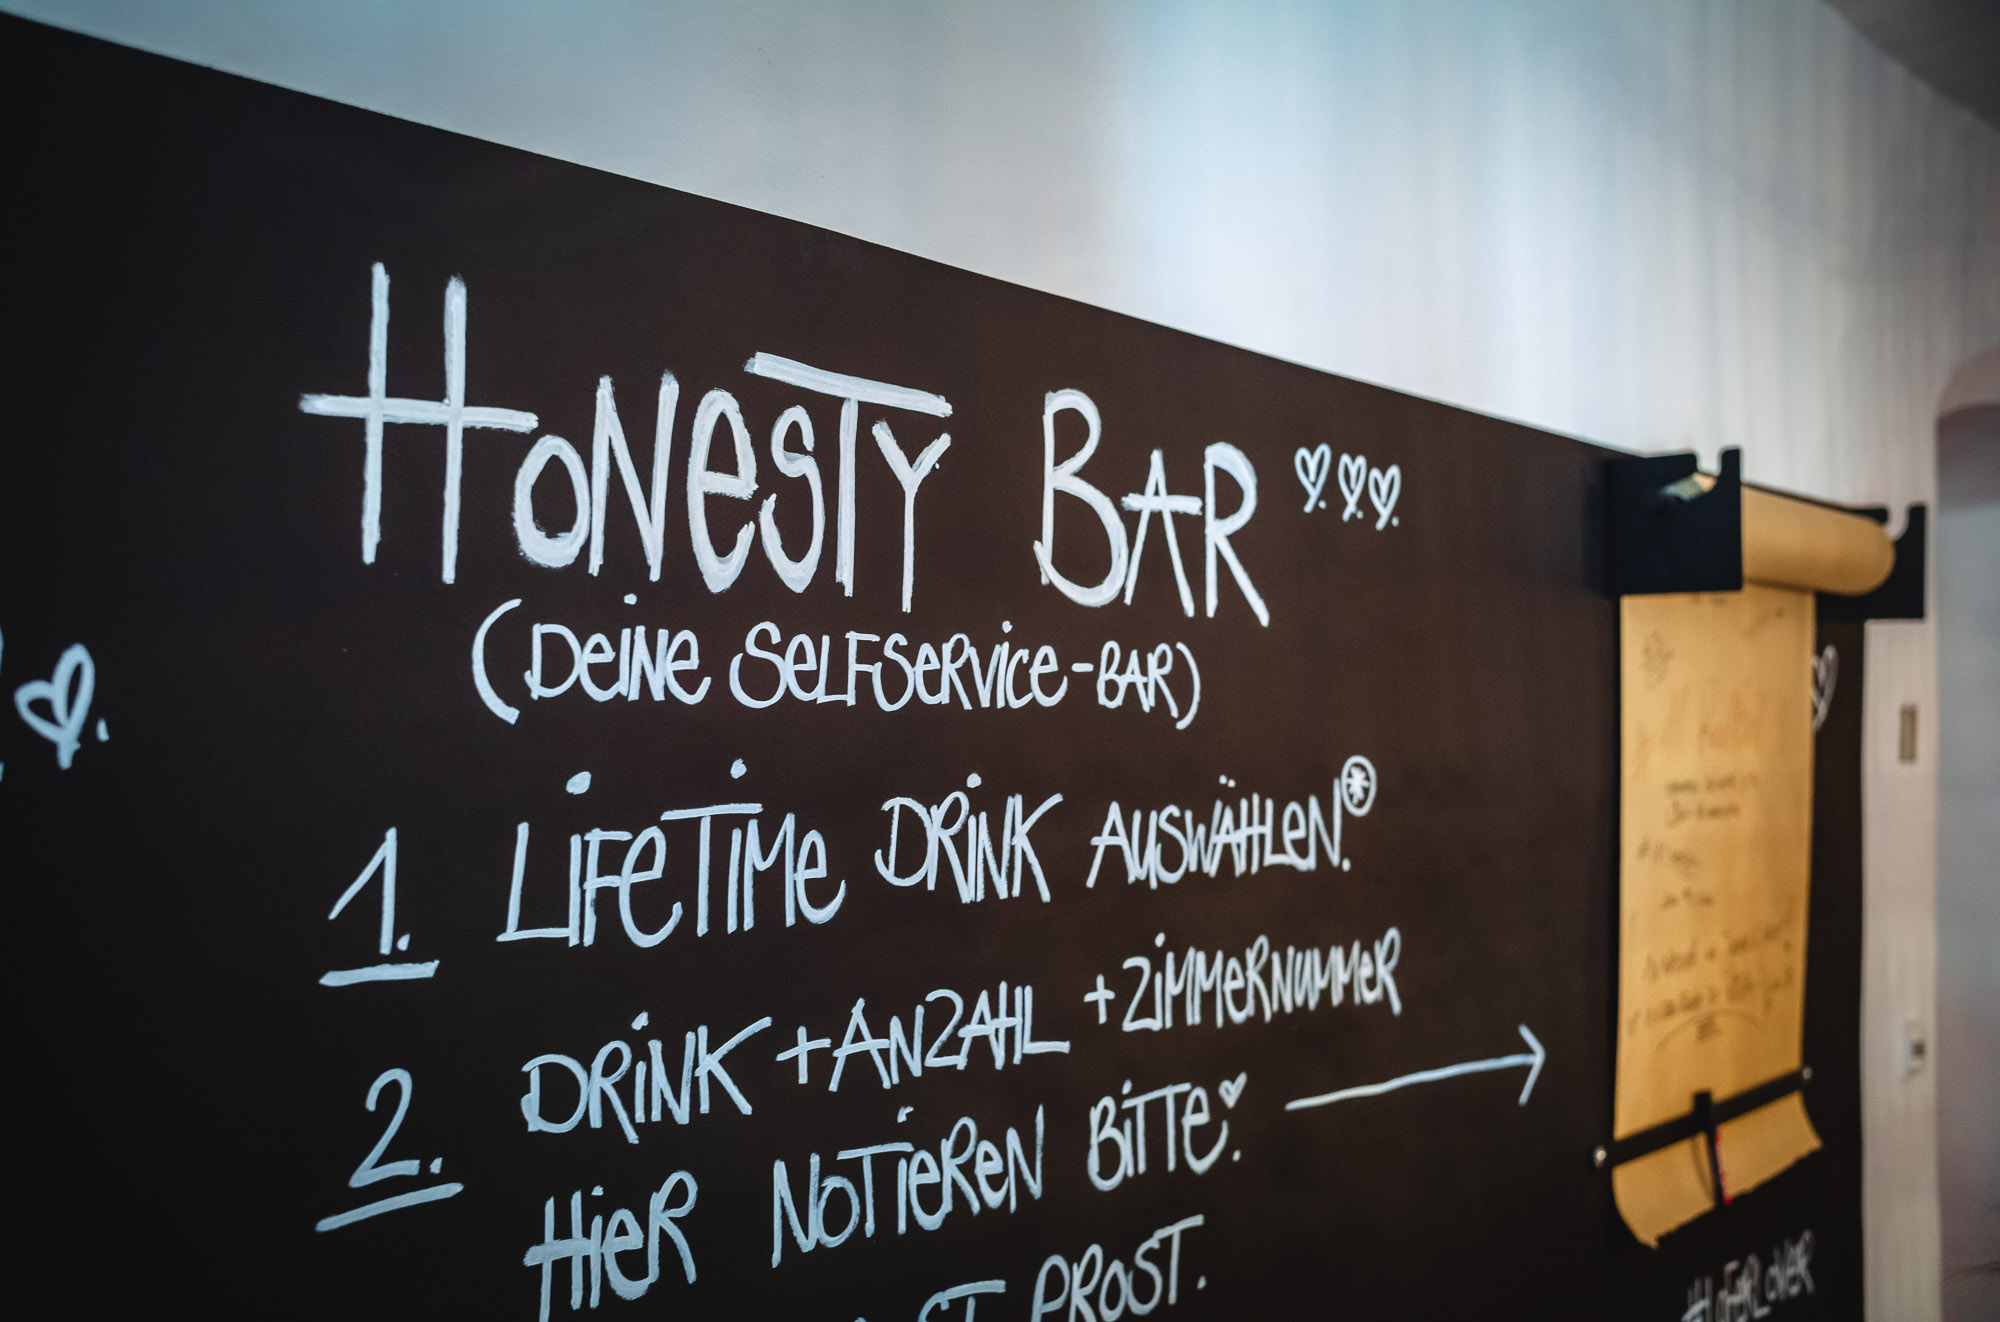 HONESTY BAR
(DEINE SELFSERVICE-BAR)
1. LIFETIME DRINK AUSWÄHLEN.*
2. DRINK + ANZAHL + ZIMMERNUMMER
HIER NOTIEREN BITTE. →
PROST.
#HOFERLOVER